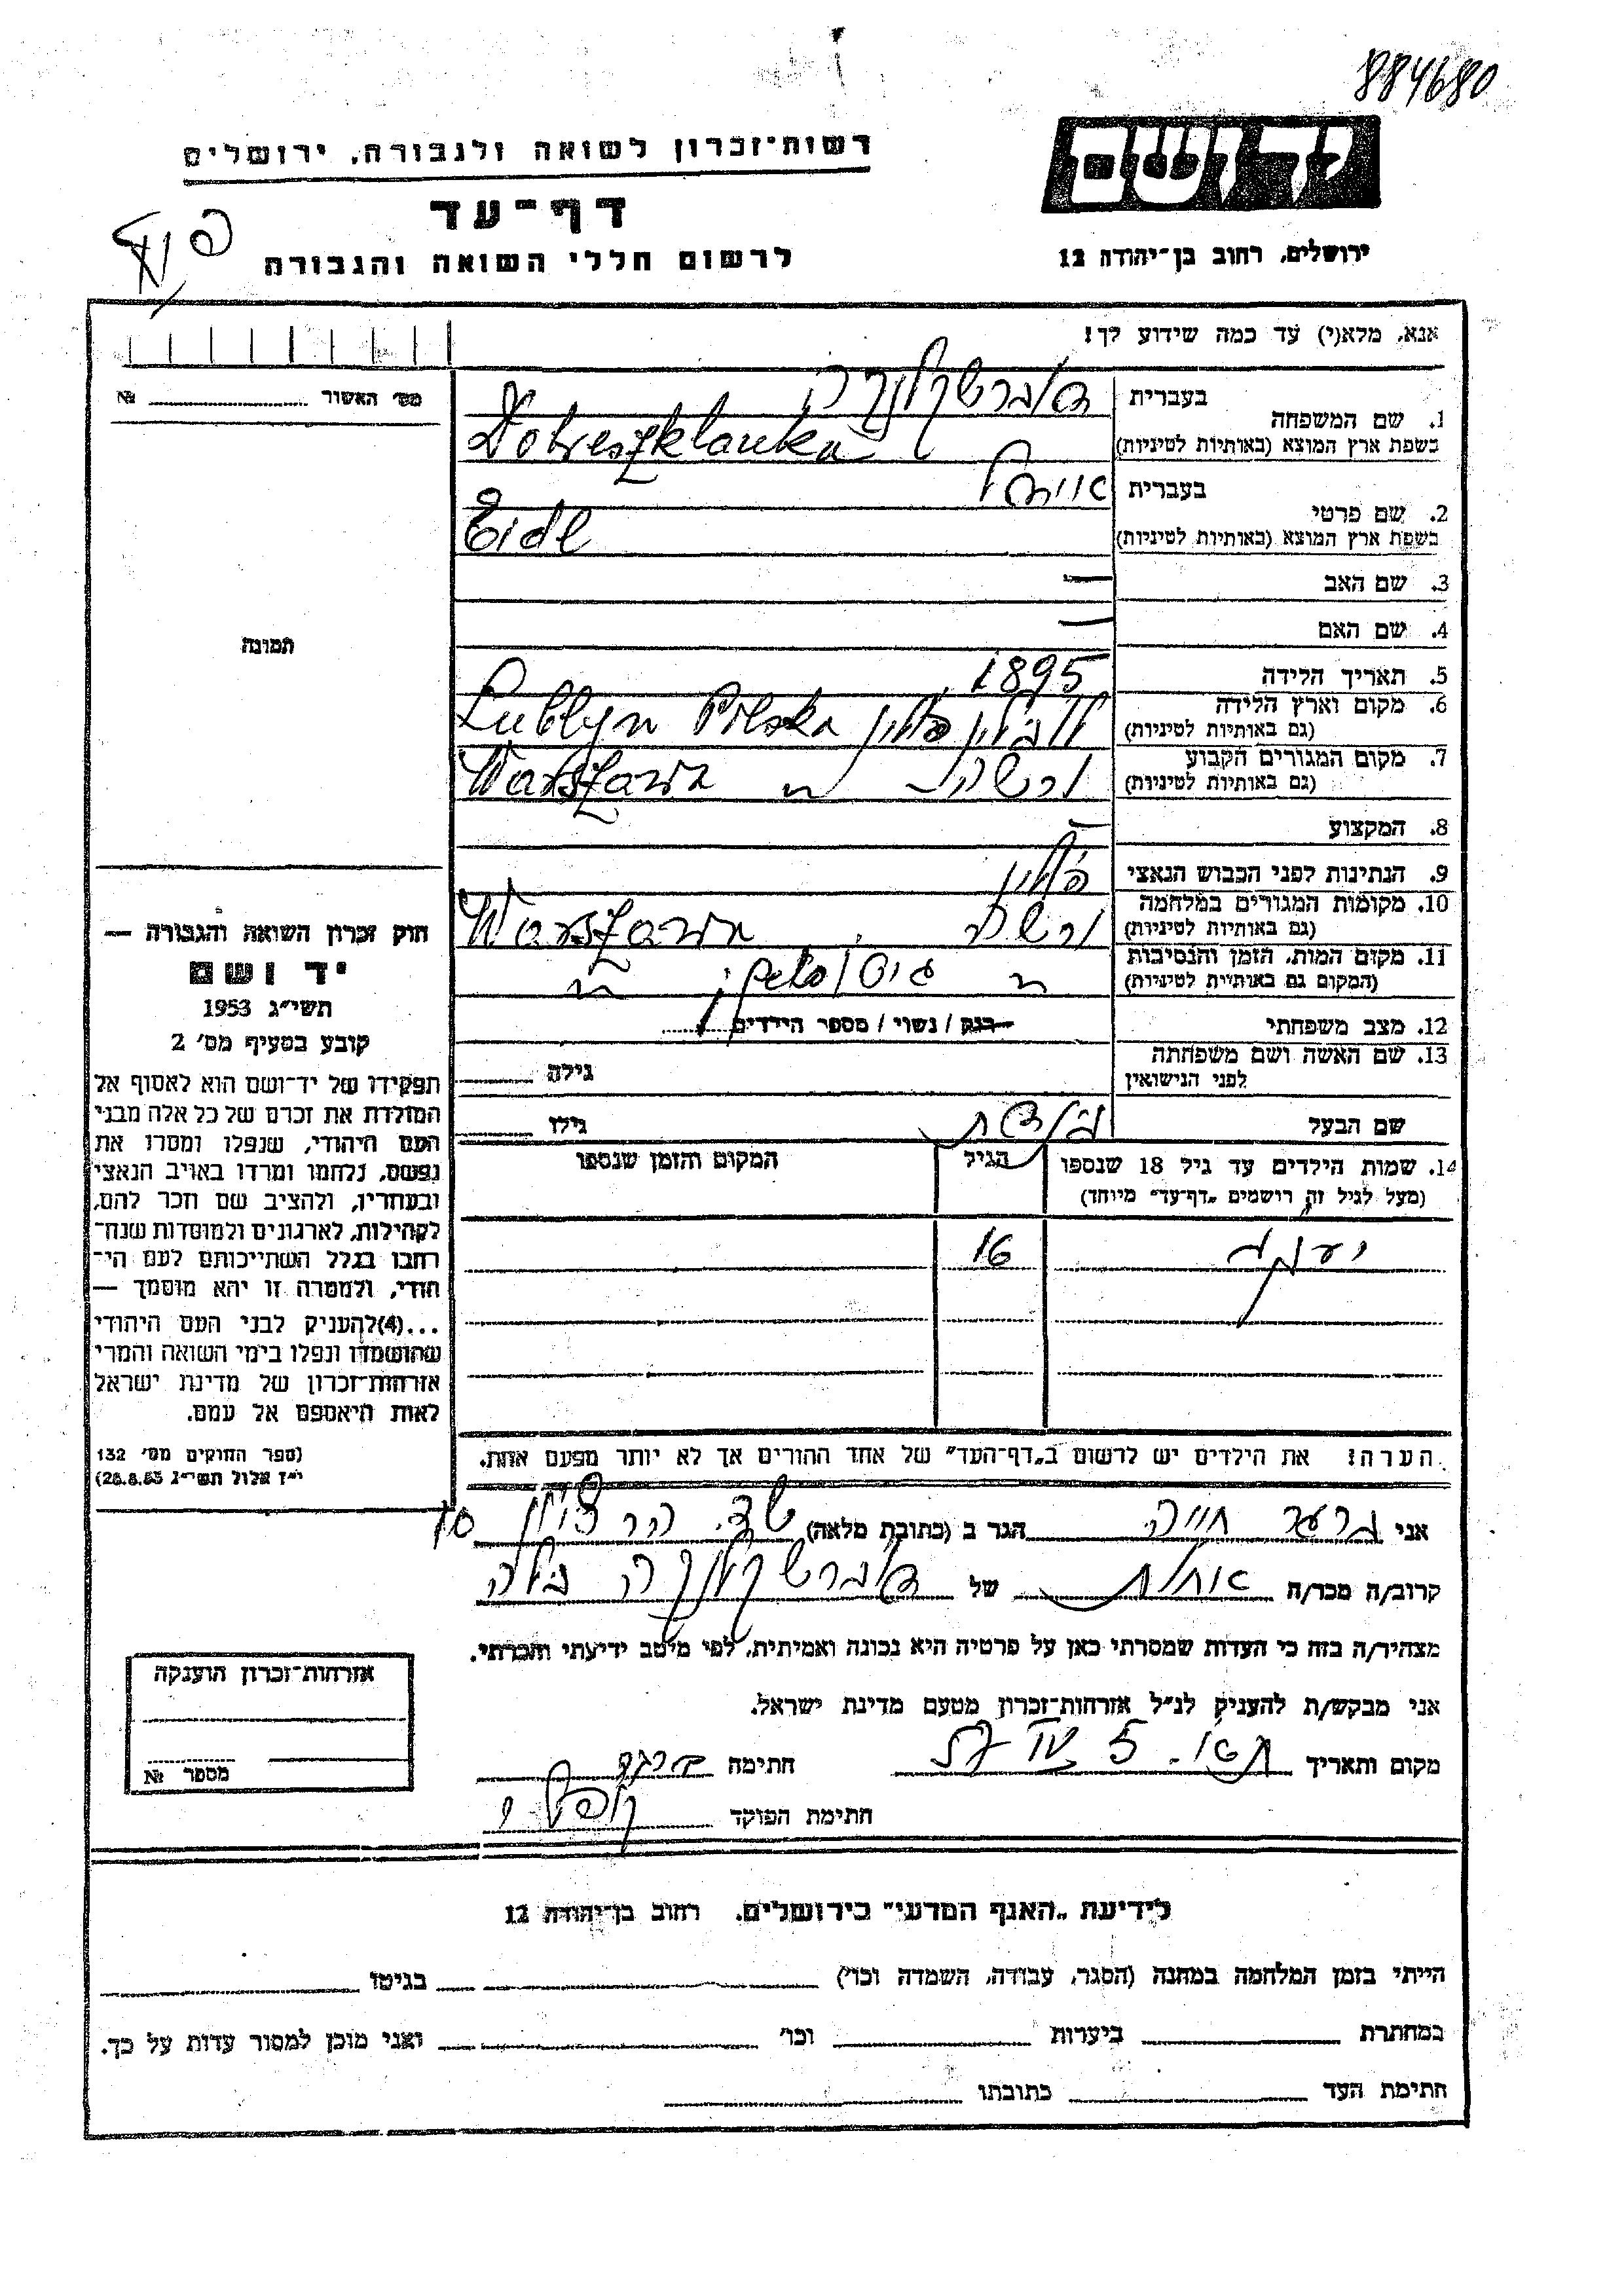 884680
יד ושם
רשות־זכרון לשואה ולגבורה, ירושלים
דף־עד
לרשום חללי השואה והגבורה
ירושלים, רחוב בן־יהודה 12
אנא, מלא(י) עד כמה שידוע לך!
מס׳ האשור № 
1. שם המשפחה
בעברית
בשפת ארץ המוצא (באותיות לטיניות)
Dobreszklanka
2. שם פרטי
בעברית אידל
בשפת ארץ המוצא (באותיות לטיניות) Eidl
3. שם האב —
4. שם האם —
תמונה
5. תאריך הלידה 1895
6. מקום וארץ הלידה (גם באותיות לטיניות) לובלין פולין Lublyn Polska
7. מקום המגורים הקבוע (גם באותיות לטיניות) ורשה Warszawa
8. המקצוע —
9. הנתינות לפני הכבוש הנאצי פולין
10. מקומות המגורים במלחמה (גם באותיות לטיניות) ורשה Warszawa
11. מקום המות, הזמן והנסיבות (המקום גם באותיות לטיניות) " "
12. מצב משפחתי רווק / נשוי / מספר הילדים
13. שם האשה ושם משפחתה לפני הנישואין גילה
שם הבעל גילו
14. שמות הילדים עד גיל 18 שנספו (מעל לגיל זה רושמים „דף־עד״ מיוחד) הגיל המקום והזמן שנספו
יעקב 16
הערה: את הילדים יש לרשום ב„דף־העד״ של אחד ההורים אך לא יותר מפעם אחת.
חוק זכרון השואה והגבורה —
יד ושם
תשי״ג 1953
קובע בסעיף מס׳ 2
תפקידו של יד־ושם הוא לאסוף אל
המולדת את זכרם של כל אלה מבני
העם היהודי, שנפלו ומסרו את
נפשם, נלחמו ומרדו באויב הנאצי
ובעוזריו, ולהציב שם וזכר להם,
לקהילות, לארגונים ולמוסדות שנח־
רבו בגלל השתייכותם לעם הי־
הודי, ולמטרה זו יהא מוסמך —
...(4)להעניק לבני העם היהודי
שהושמדו ונפלו בימי השואה והמרי
אזרחות־זכרון של מדינת ישראל
לאות היאספם אל עמם.
(ספר החוקים מס׳ 132
י״ז אלול תשי״ג 28.8.53)
אני חויה הגר ב (כתובת מלאה) הר ציון
קרוב/ה מכר/ה אחות של
מצהיר/ה בזה כי העדות שמסרתי כאן על פרטיה היא נכונה ואמיתית, לפי מיטב ידיעתי והכרתי.
אני מבקש/ת להעניק לנ״ל אזרחות־זכרון מטעם מדינת ישראל.
מקום ותאריך חתימה
חתימת הפוקד
אזרחות־זכרון הוענקה
מספר №
לידיעת „האגף המדעי״ בירושלים, רחוב בן־יהודה 12
הייתי בזמן המלחמה במחנה (הסגר, עבודה, השמדה וכו׳) בגיטו
במחתרת ביערות וכו׳ ואני מוכן למסור עדות על כך.
חתימת העד כתובתו